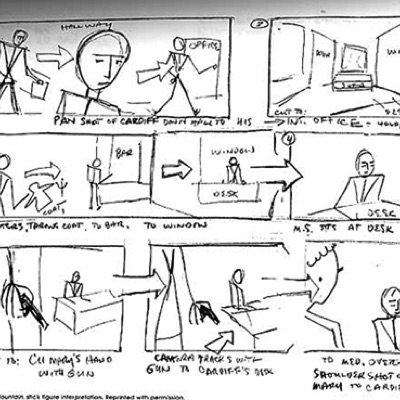 HALLWAY
OFFICE
DOOR
PAN SHOT OF CARDIFF DOWN HALL TO HIS
CUT TO:
INT. OFFICE
BAR
COAT
WINDOW
DESK
4
DESK
THROWS COAT, TO BAR, TO WINDOW
M.S. SITS AT DESK
TO: CU MARY'S HAND
WITH GUN
CAMERA TRACKS WITH
GUN TO CARDIFF'S DESK
TO MED. OVER
SHOULDER SHOT O
MARY TO CARDI
ountain, stick figure interpretation. Reprinted with permission.